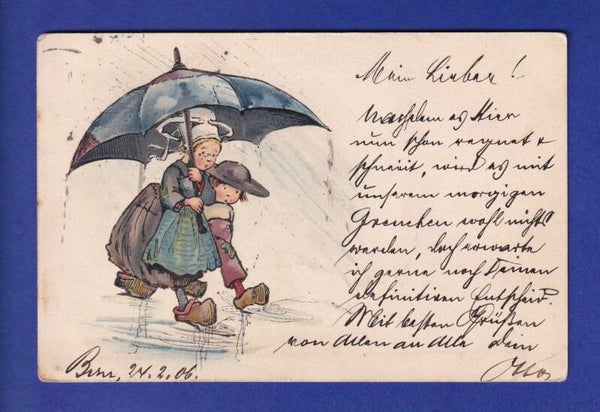 Mein Lieber!
Nachdem es Hier
nun schon regnet &
schneit, wird es mit
unserem morgigen
Grenchen wohl nichts
werden, doch erwarte
ich gerne noch Deinen
definitiven Entscheid.
Mit besten Grüßen
von Allen an Alle dein
Bern, 24.2.06.